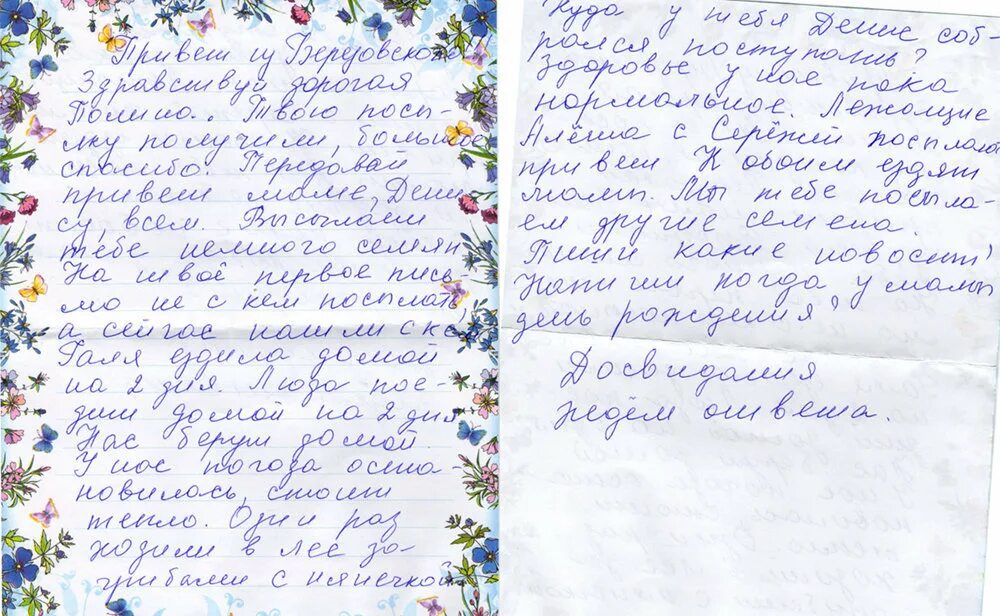 Привет из Березовского
Здравствуй дорогая
Полина. Твою посы-
лку получили, большое
спасибо. Передавай
привет маме, Дени
су всем. Высылаем
тебе немного семян
На твоё первое пись-
мо не с кем посылать
а сейчас нашли с кем
Галя ездила домой
на 2 дня. Люда пое-
дит домой на 2 дня
Нас берут домой.
У нас погода оста-
новилась, стоит
тепло. Один раз
ходили в лес за
грибами с нянечкой
Куда у тебя Денис соб-
рался поступать?
Здоровье у нас пока
нормальное. Лежащие
Алёша с Серёжей посылали
привет К обоим ездят
мамы. Мы тебе посыла-
ем другие семена.
Пиши какие новости!
Напиши когда у мамы
день рождения?
Досвидания
ждём ответа.